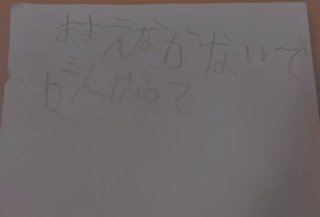 ままえなかないで
がんばって